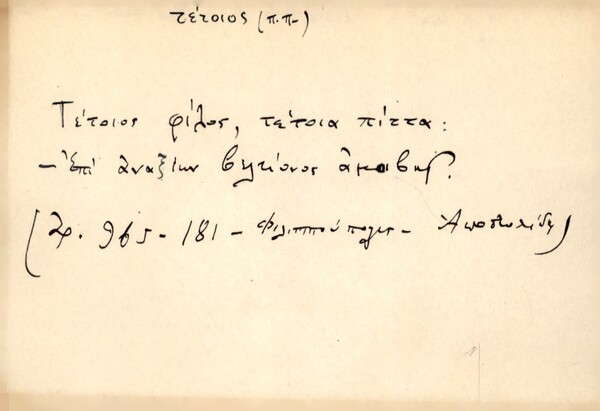 τέτοιος (π.π.)
Τέτοιος φίλος, τέτοια πίττα:
– Ἐπὶ ἀναξίων βελτίονος
965 – 181 – Φιλιππούπολις – Ἀποστολίδης)